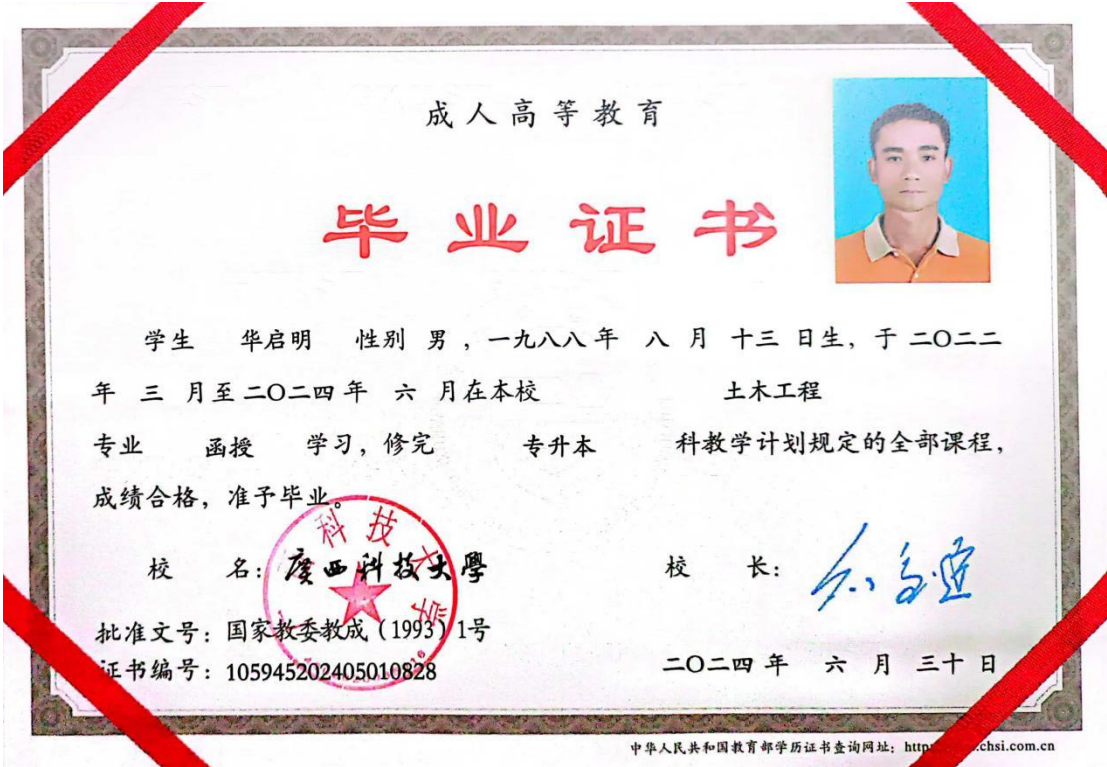 成人高等教育
毕业证书
学生 华启明 性别 男，一九八八年 八 月 十三 日生，于 二〇二二
年 三 月至 二〇二四 年 六 月在本校 土木工程
专业 函授 学习，修完 专升本 科教学计划规定的全部课程，
成绩合格，准予毕业。
校 名：廣西科技大學
科技大学
校 长：
批准文号：国家教委教成（1993）1号
证书编号：105945202405010828
二〇二四 年 六 月 三十 日
中华人民共和国教育部学历证书查询网址：http chsi.com.cn